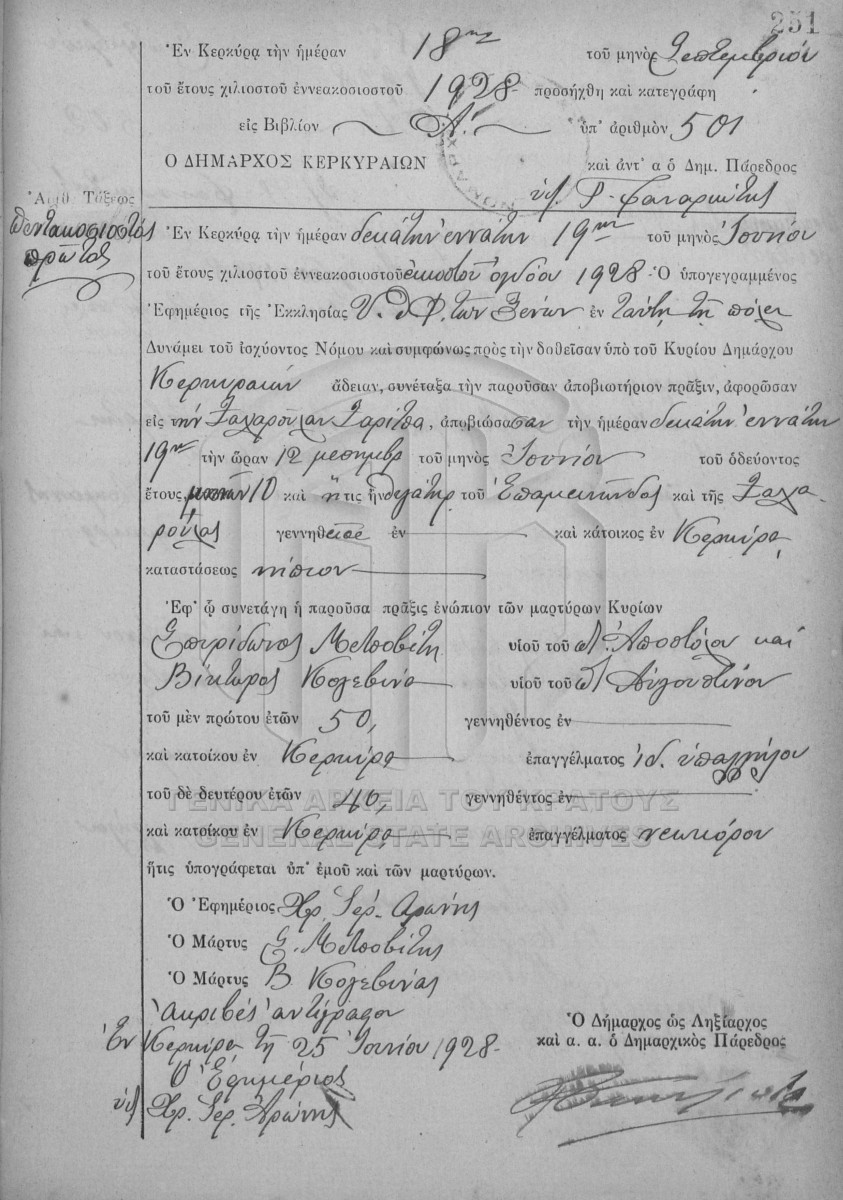 251
Ἐν Κερκύρᾳ τὴν ἡμέραν 18ην τοῦ μηνὸς Σεπτεμβρίου
τοῦ ἔτους χιλιοστοῦ ἐννεακοσιοστοῦ 1928 προσήχθη καὶ κατεγράφη
εἰς Βιβλίον Α΄ ὑπ' ἀριθμὸν 501
Ο ΔΗΜΑΡΧΟΣ ΚΕΡΚΥΡΑΙΩΝ καὶ ἀντ' α ὁ Δημ. Πάρεδρος
Ἀριθ Τάξεως
πεντακοσιοστὸς
πρῶτος
Ἐν Κερκύρᾳ τὴν ἡμέραν δεκάτην ἐννάτην 19ην τοῦ μηνὸς Ἰουνίου
τοῦ ἔτους χιλιοστοῦ ἐννεακοσιοστοῦ εἰκοστοῦ ὀγδόου 1928 Ὁ ὑπογεγραμμένος
Ἐφημέριος τῆς Ἐκκλησίας Υ. Θ. Φ. τῶν Ξένων ἐν ταύτῃ τῇ πόλει
Δυνάμει τοῦ ἰσχύοντος Νόμου καὶ συμφώνως πρὸς τὴν δοθεῖσαν ὑπὸ τοῦ Κυρίου Δημάρχου
Κερκυραίων ἄδειαν, συνέταξα τὴν παροῦσαν ἀποβιωτήριον πρᾶξιν, ἀφορῶσαν
εἰς τὴν Ζαχαρούλαν Ζαρίπα, ἀποβιώσασαν τὴν ἡμέραν δεκάτην ἐννάτην
19ην τὴν ὥραν 12 μεσημβρ τοῦ μηνὸς Ἰουνίου τοῦ ὁδεύοντος
ἔτους, μηνῶν 10 καὶ ἥτις ἦν θυγάτηρ τοῦ Ἐπαμεινώνδος καὶ τῆς Ζαχα-
ρούλας γεννηθεῖσα ἐν καὶ κάτοικος ἐν Κερκύρᾳ,
καταστάσεως νήπιον
Ἐφ' ᾧ συνετάγη ἡ παροῦσα πρᾶξις ἐνώπιον τῶν μαρτύρων Κυρίων
Σπυρίδωνος υἱοῦ τοῦ Ἀποστόλου καὶ
Βίκτωρος Κολεβίνα υἱοῦ τοῦ Αὐγουστίνου
τοῦ μὲν πρώτου ἐτῶν 50, γεννηθέντος ἐν
καὶ κατοίκου ἐν Κερκύρᾳ ἐπαγγέλματος ἰδ. ὑπαλλήλου
τοῦ δὲ δευτέρου ἐτῶν 40, γεννηθέντος ἐν
ΓΕΝΙΚΑ ΑΡΧΕΙΑ ΤΟΥ ΚΡΑΤΟΥΣ
καὶ κατοίκου ἐν Κερκύρᾳ ἐπαγγέλματος νεωκόρου
GENERAL STATE ARCHIVES
ἥτις ὑπογράφεται ὑπ' ἐμοῦ καὶ τῶν μαρτύρων.
Ὁ Ἐφημέριος Χρ. Ἱερ. Ἀρώνης
Ὁ Μάρτυς Σ.
Ὁ Μάρτυς Β. Κολεβίνας
Ἀκριβὲς ἀντίγραφον
Ἐν Κερκύρᾳ τῇ 25 Ἰουνίου 1928
Ὁ Ἐφημέριος
Χρ. Ἱερ. Ἀρώνης
Ὁ Δήμαρχος ὡς Ληξίαρχος
καὶ α. α. ὁ Δημαρχικὸς Πάρεδρος